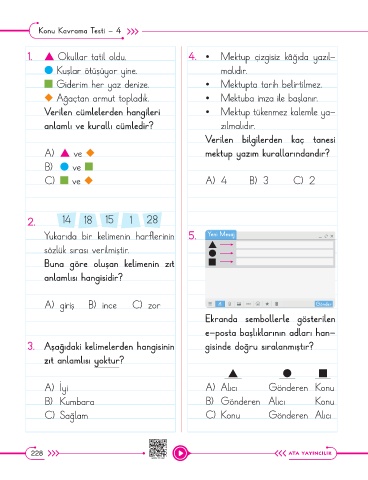 Konu Kavrama Testi - 4
1. Okullar tatil oldu.
Kuşlar ötüşüyor yine.
Giderim her yaz denize.
Ağaçtan armut topladık.
Verilen cümlelerden hangileri
anlamlı ve kurallı cümledir?
A) ve
B) ve
C) ve
2. 14 18 15 1 28
Yukarıda bir kelimenin harflerinin
sözlük sırası verilmiştir.
Buna göre oluşan kelimenin zıt
anlamlısı hangisidir?
A) giriş B) ince C) zor
3. Aşağıdaki kelimelerden hangisinin
zıt anlamlısı yoktur?
A) İyi
B) Kumbara
C) Sağlam
4. • Mektup çizgisiz kâğıda yazıl-
malıdır.
• Mektupta tarih belirtilmez.
• Mektuba imza ile başlanır.
• Mektup tükenmez kalemle ya-
zılmalıdır.
Verilen bilgilerden kaç tanesi
mektup yazım kurallarındandır?
A) 4 B) 3 C) 2
5. Yeni Mesaj
Gönder
Ekranda sembollerle gösterilen
e-posta başlıklarının adları han-
gisinde doğru sıralanmıştır?
A) Alıcı Gönderen Konu
B) Gönderen Alıcı Konu
C) Konu Gönderen Alıcı
228
ATA YAYINCILIK